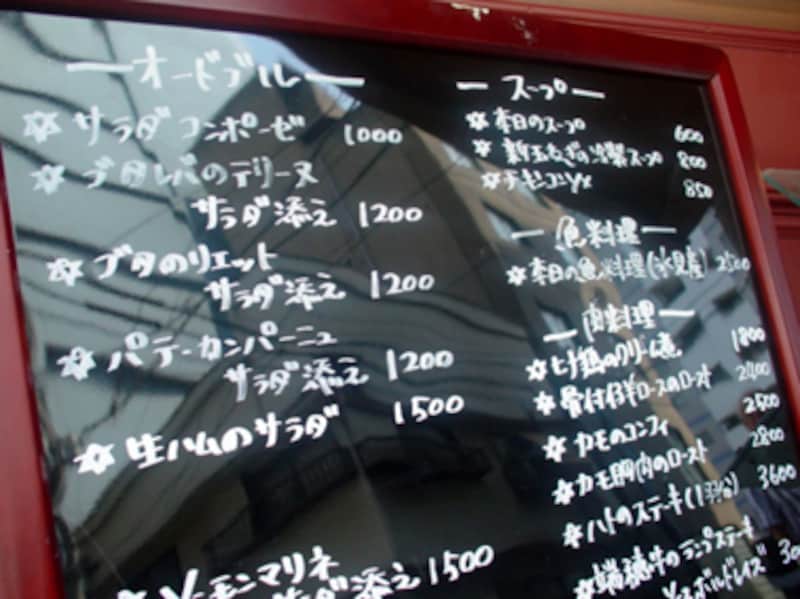 オードブル
サラダコンポーゼ 1000
ブタレバのテリーヌ
サラダ添え 1200
ブタのリエット
サラダ添え 1200
パテ・カンパーニュ
サラダ添え 1200
生ハムのサラダ 1500
マリネ
添え 1500
スープ
本日のスープ 600
新玉ねぎの冷製スープ 800
850
魚料理
本日の魚料理(氷見産) 2500
肉料理
ヒナ鶏のクリーム煮 1800
骨付仔羊ロースのロースト 2400
カモのコンフィ 2500
カモ胸肉のロースト 2800
ハトのステキ(1羽分) 3600
瑞穂牛のランプステキ
ボルドレイズ